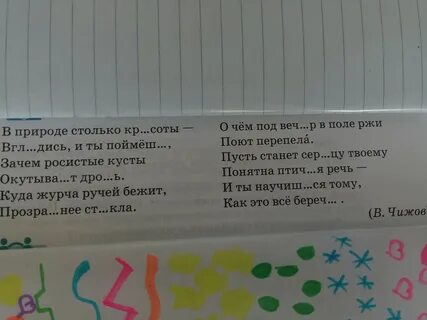 В природе столько кр...соты —
Вгл...дись, и ты поймёш...,
Зачем росистые кусты
Окутыва...т дро...ь.
Куда журча ручей бежит,
Прозра...нее ст...кла.
О чём под веч...р в поле ржи
Поют перепела́.
Пусть станет сер...цу твоему
Понятна птич...я речь —
И ты научиш...ся тому,
Как это всё береч... .
(В. Чижов